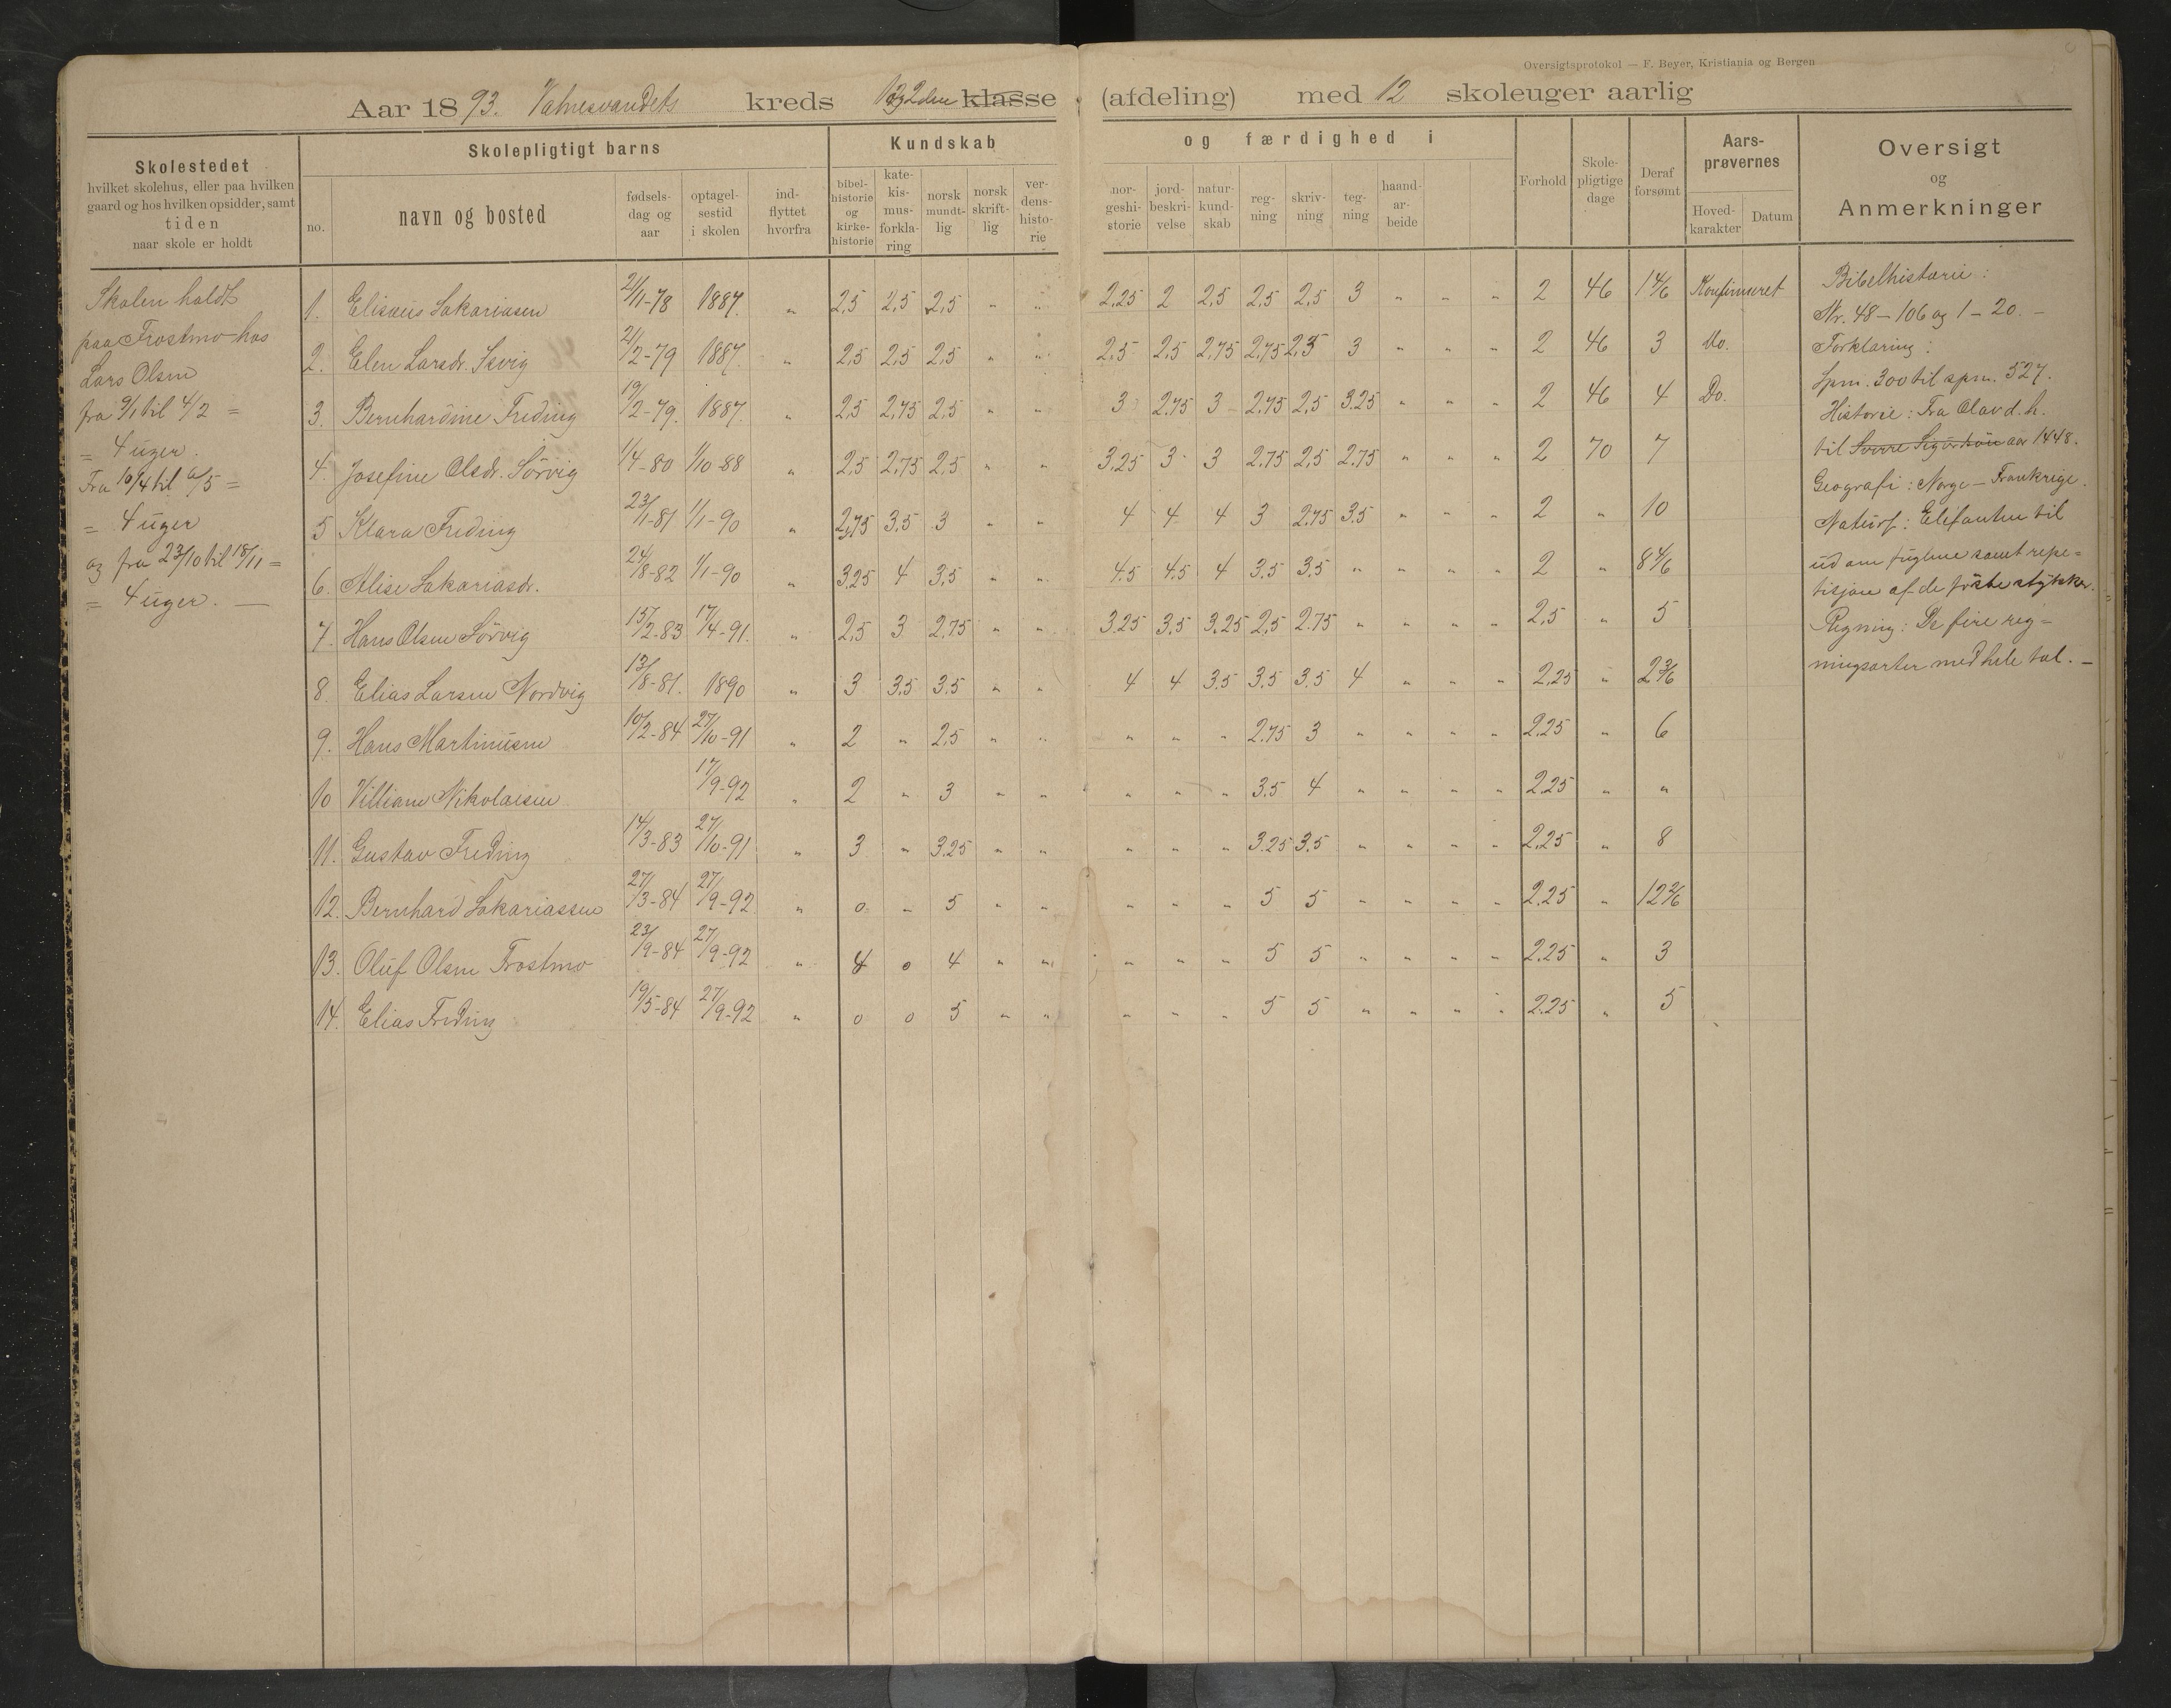 Oversigtsprotokol — F. Beyer, Kristiania og Bergen
Aar 1893. Vatnesvandets kreds 1 og 2den klasse (afdeling) med 12 skoleuger aarlig
Skolestedet
hvilket skolehus, eller paa hvilken
gaard og hos hvilken opsidder, samt
tiden
naar skole er holdt
Skolepligtigt barns
no.
navn og bosted
fødsels-
dag og
aar
optagel-
sestid
i skolen
ind-
flyttet
hvorfra
Kundskab og færdighed i
bibel-
historie
og
kirke-
historie
kate-
kis-
mus-
forkla-
ring
norsk
mundt-
lig
norsk
skrift-
lig
ver-
dens-
histo-
rie
nor-
geshi-
storie
jord-
beskri-
velse
natur-
kund-
skab
reg-
ning
skriv-
ning
teg-
ning
haand-
ar-
beide
Forhold
Skole-
pligtige
dage
Deraf
forsømt
Aars-
prøvernes
Hoved-
karakter
Datum
Oversigt
og
Anmerkninger
Skolen holdt
paa Frostmo hos
Lars Olsen
fra 9/1 til 4/2 =
= 4 uger.
Fra 10/4 til 6/5 =
= 4 uger
og fra 23/10 til 18/11 =
= 4 uger. —
1. Elisæus Sakariasen 21/11-78 1887. " 2,5 2,5 2,5 " " 2,25 2 2,5 2,5 2,5 3 " " " 2 46 1 4/6 Konfirmeret
2. Elen Larsdr. 21/2-79 1887. " 2,5 2,5 2,5 " " 2,5 2,5 2,75 2,75 2,5 3 " " " 2 46 3 Do.
3. Bernhardine Freding 19/2-79. 1887. " 2,5 2,75 2,5 " " 3 2,75 3 2,75 2,5 3.25 " " " 2 46 4 Do.
4. Josefine Olsdr. Sörvig 1/4-80 1/10-88 " 2,5 2,75 2,5 " " 3,25 3 3 2,75 2,5 2.75 " " " 2 70 7
5 Klara Freding 23/11-81 1/1-90 " 2,75 3,5 3 " " 4 4 4 3 2.75 3.5 " " " 2 " 10
6. Alise Sakariasdr. 24/8-82 1/1-90 " 3.25 4 3,5 " " 4.5 4.5 4 3.5 3.5 " " " " 2 " 8 4/6
7. Hans Olsen Sörvig 15/2-83 17/4-91. " 2,5 3 2,75 " " 3.25 3,5 3,25 2,5 2.75 " " " " 2,5 " 5
8. Elias Larsen Nordvig 13/8-81. 1890 " 3 3.5 3.5 " " 4 4 3.5 3.5 3.5 4 " " " 2.25 " 2 3/6
9. Hans Martinusen 10/2-84 27/10-91 " 2 " 2,5 " " " " " 2.75 3 " " " " 2.25 " 6
10 Villiam Nikolaisen 17/9-92 " 2 " 3 " " " " " 3.5 4 " " " " 2.25 " "
11. Gustav Freding 14/3-83 27/10-91 " 3 " 3.25 " " " " " 3.25 3.5 " " " " 2.25 " 8
12. Bernhard Sakariassen 27/3-84 27/9-92 " 0 " 5 " " " " " 5 5 " " " " 2.25 " 12 2/6
13. Oluf Olsen Frostmo 23/9-84 27/9-92 " 4 0 4 " " " " " 5 5 " " " " 2.25 " 3
14. Elias Freding 19/5-84 27/9-92 " 0 0 5 " " " " " 5 5 " " " " 2.25 " 5
Bibelhistorie:
Nr. 48 – 106 og 1 – 20. –
Forklaring:
Spm. 300 til spm. 527.
Historie: Fra Olav d. h.
til Sverre Sigurdsön aar 1448.
Geografi: Norge – Frankrige.
Naturf: Elefanten til
ud om fuglene samt repe=
tisjon af de förste stykker.
Regning: De fire reg=
ningsarter med hele tal. –